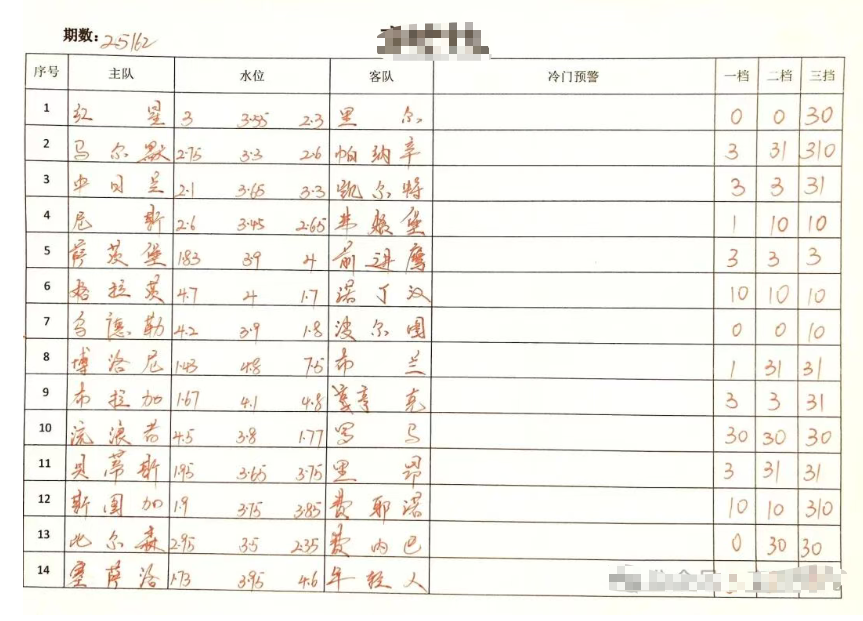 期数: 25162
序号 主队 水位 客队 冷门预警 一档 二档 三挡
1 红星 3 3.55 2.3 里尔 0 0 30
2 马尔默 2.75 3.3 2.6 帕纳辛 3 31 310
3 中日兰 2.1 3.65 3.3 凯尔特 3 3 31
4 尼斯 2.6 3.45 2.65 弗赖堡 1 10 10
5 萨茨堡 1.83 3.9 4 前进鹰 3 3 3
6 格拉茨 4.7 4 1.7 诺丁汉 10 10 10
7 乌德勒 4.2 3.9 1.8 波尔图 0 0 10
8 博洛尼 1.43 4.8 7.5 布兰 1 31 31
9 布拉加 1.67 4.1 4.8 亨克 3 3 31
10 流浪者 4.5 3.8 1.77 罗马 30 30 30
11 贝蒂斯 1.95 3.65 3.75 里昂 3 31 31
12 斯图加 1.9 3.75 3.85 费耶诺 10 10 310
13 比尔森 2.95 3.5 2.35 费内巴 0 30 30
14 塞萨洛 1.73 3.95 4.6 年轻人